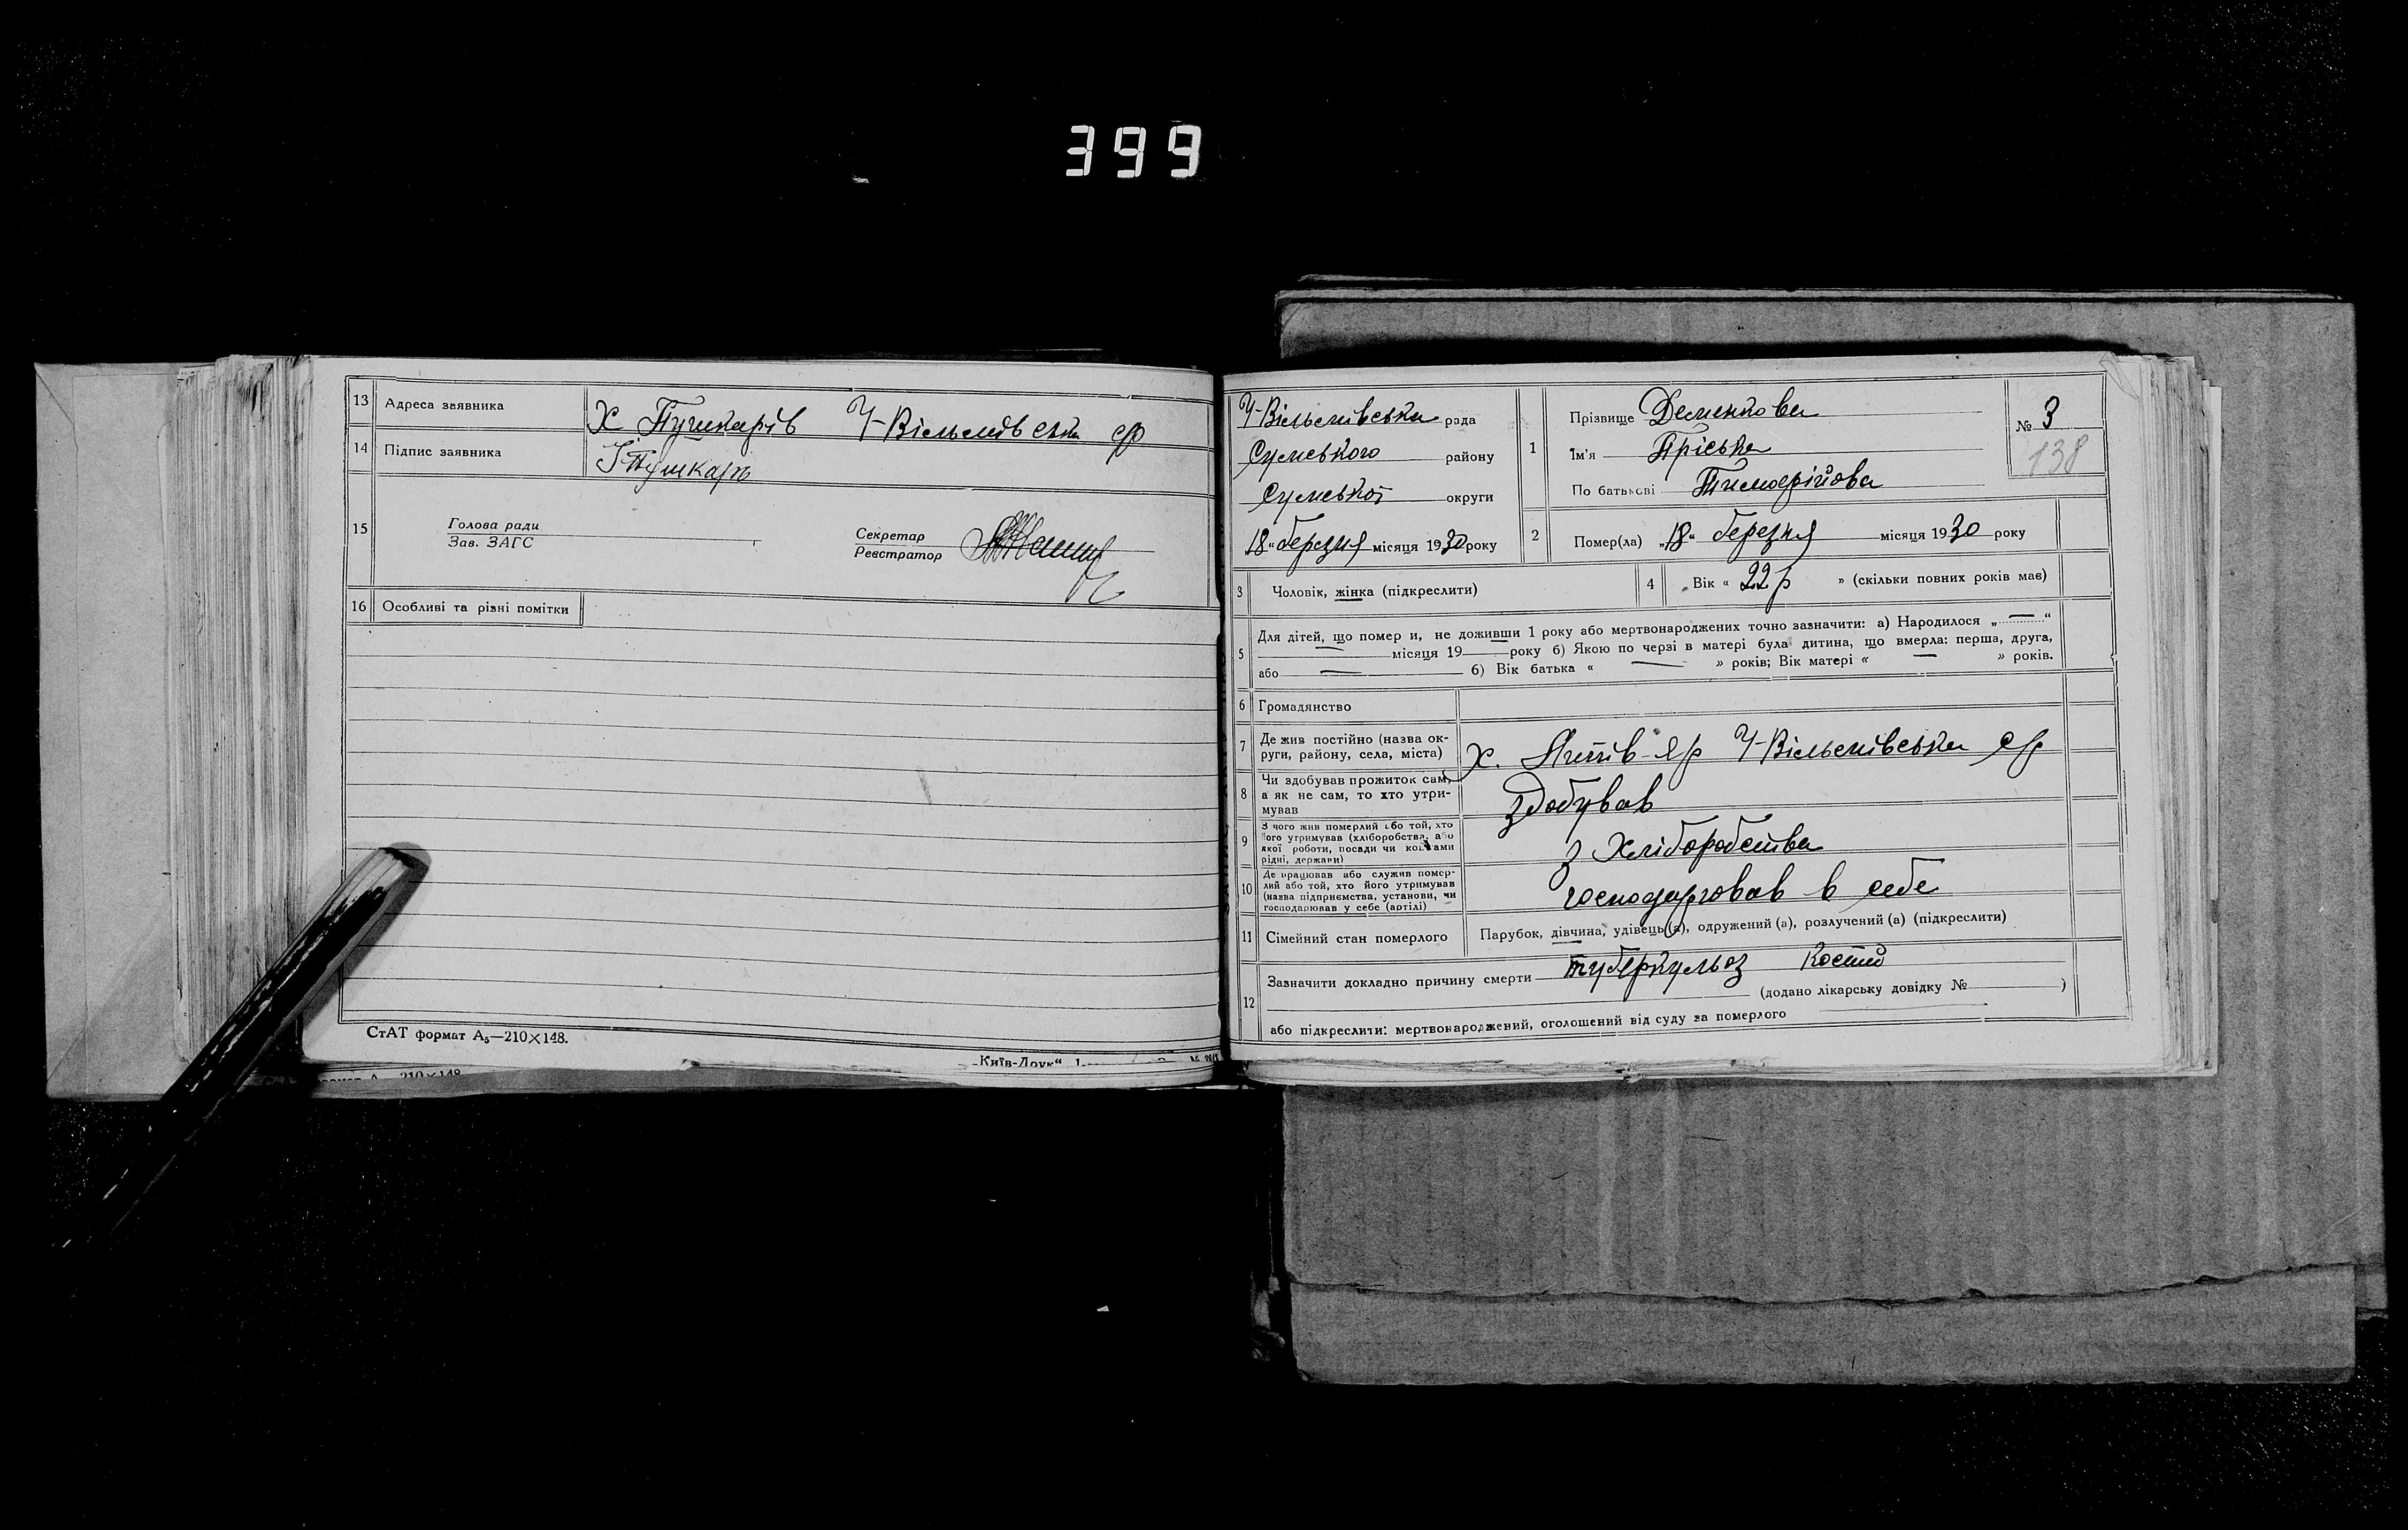 399
13 Адреса заявника Х Пушкарів У-Вільмівська с/р
14 Підпис заявника І Пушкарь
15 Голова ради
Зав. ЗАГС
Секретар
Реєстратор
16 Особливі та різні помітки
СтАТ формат А₅—210×148.
„Київ-Друк“
У-Вільмівська рада
Сумського району
Сумської округи
18 „березня місяця 1930 року
1 Прізвище Деменкова
Ім'я Пріська
По батькові Тимофійова
№ 3
138
2 Помер(ла) „18“ березня місяця 1930 року
3 Чоловік, жінка (підкреслити)
4 „Вік “ 22 р » (скільки повних років має)
5 Для дітей, що помер и, не доживши 1 року або мертвонароджених точно зазначити: а) Народилося „ — “
— місяця 19 — року б) Якою по черзі в матері була дитина, що вмерла: перша, друга,
або — б) Вік батька « — » років; Вік матері « — » років.
6 Громадянство
7 Де жив постійно (назва ок-
руги, району, села, міста) х. -яр У-Вільмівська с/р
8 Чи здобував прожиток сам,
а як не сам, то хто утри-
мував здобував
9 З чого жив померлий або той, хто
його утримував (хліборобства, або
якої роботи, посади чи коштами
рідні, держави) з Хліборобства
10 Де працював або служив помер-
лий або той, хто його утримував
(назва підприємства, установи, чи
господарював у себе (артілі) господарював в себе
11 Сімейний стан померлого Парубок, дівчина, удівець(а), одружений (а), розлучений (а) (підкреслити)
12 Зазначити докладно причину смерти туберкульоз Костей
(додано лікарську довідку № )
або підкреслити: мертвонароджений, оголошений від суду за померлого